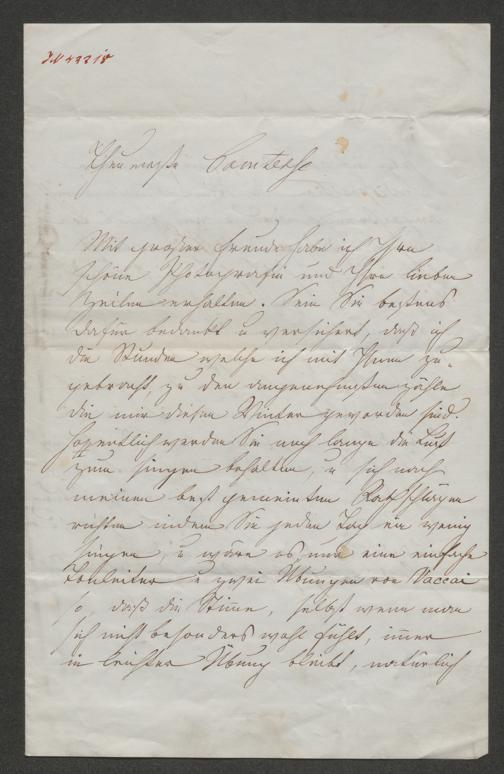 Theuerste Comtesse
Mit großer Freude habe ich Ihre
schöne Photografie und Ihre lieben
Zeilen erhalten. Sein Sie bestens
dafür bedankt u versichert, daß ich
die Stunden welche ich mit Ihnen zu-
gebracht, zu den angenehmsten zähle
die mir diesen Winter geworden sind.
Hoffentlich werden Sie noch lange die Lust
zum singen behalten, u sich nach
meinen best gemeinten Rathschlägen
richten indem Sie jeden Tag ein wenig
singen, u wäre es nur eine einfache
Tonleiter u zwei Übungen von Vaccai
so, daß die Stimme, selbst wenn man
sich nicht besonders wohl fühlt, immer
in leichter Übung bleibt, natürlich